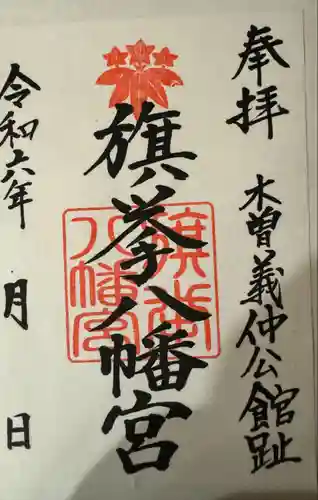 奉拝
木曽義仲公館趾
旗挙八幡宮
旗挙
八幡宮
令和六年
月
日